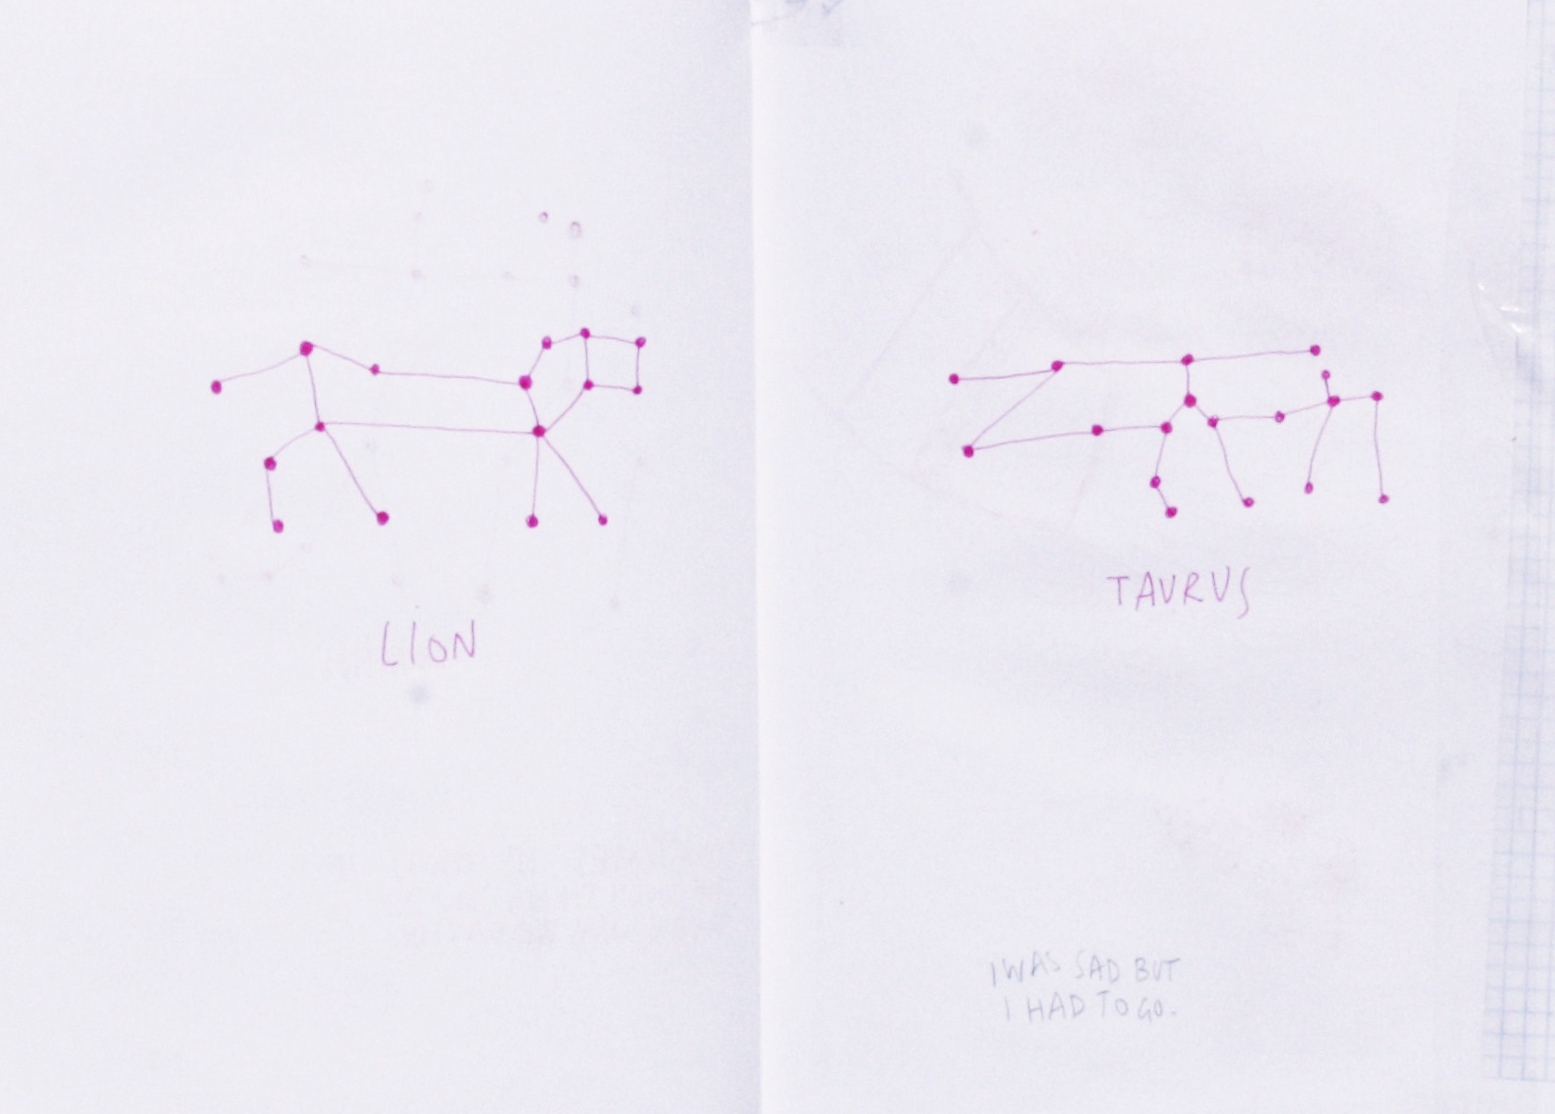 LION
TAURUS
I WAS SAD BUT
I HAD TO GO.